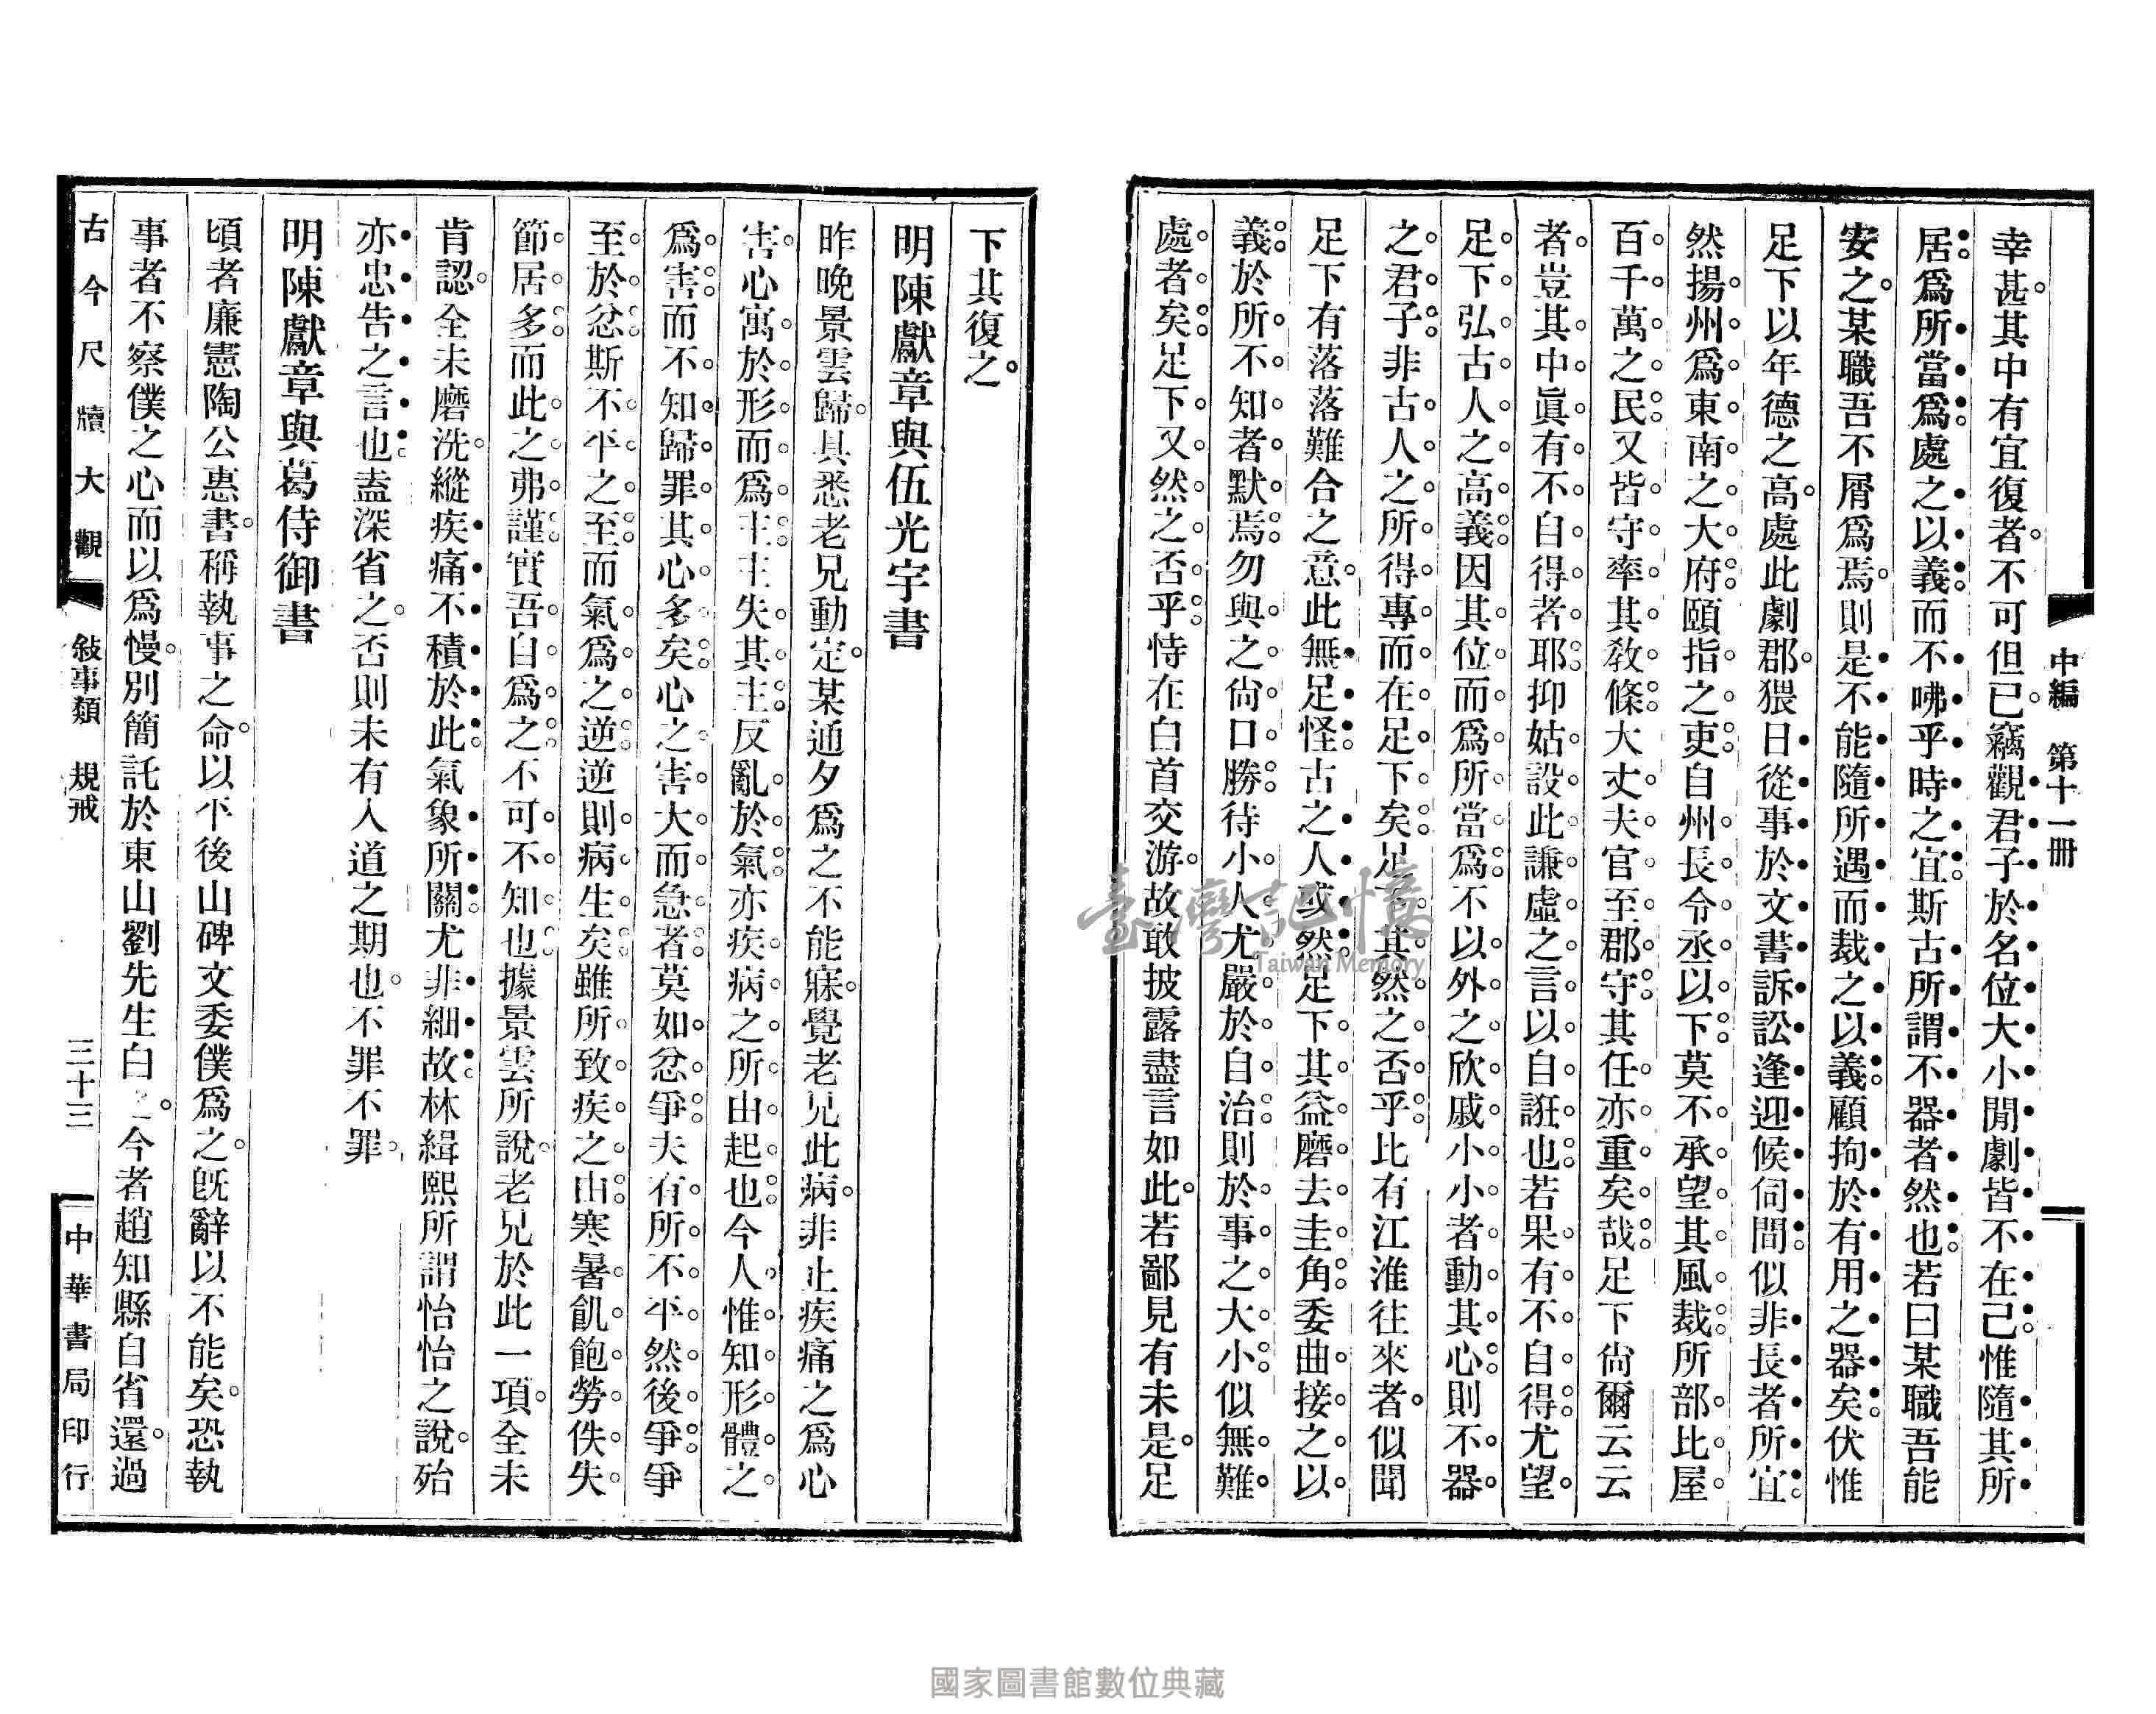 中編　第十一冊
幸甚其中有宜復者不可但已竊觀君子於名位大小閒劇皆不在己惟隨其所
居爲所當爲處之以義而不咈乎時之宜斯古所謂不器者然也若曰某職吾能
安之某職吾不屑爲焉則是不能隨所遇而裁之以義顧拘於有用之器矣伏惟
足下以年德之高處此劇郡猥日從事於文書訴訟逢迎候伺間似非長者所宜
然揚州爲東南之大府頤指之吏自州長令丞以下莫不承望其風裁所部比屋
百千萬之民又皆守率其敎條大丈夫官至郡守其任亦重矣哉足下尙爾云云
者豈其中眞有不自得者耶抑姑設此謙虛之言以自誑也若果有不自得尤望
足下弘古人之高義因其位而爲所當爲不以外之欣戚小小者動其心則不器
之君子非古人之所得專而在足下矣足下其然之否乎比有江淮往來者似聞
足下有落落難合之意此無足怪古之人或然足下其益磨去圭角委曲接之以
義於所不知者默焉勿與之尙口勝待小人尤嚴於自治則於事之大小似無難
處者矣足下又然之否乎恃在白首交游故敢披露盡言如此若鄙見有未是足
下其復之
明陳獻章與伍光宇書
昨晚景雲歸具悉老兄動定某通夕爲之不能寐覺老兄此病非止疾痛之爲心
害心寓於形而爲主主失其主反亂於氣亦疾病之所由起也今人惟知形體之
爲害而不知歸罪其心多矣心之害大而急者莫如忿爭夫有所不平然後爭爭
至於忿斯不平之至而氣爲之逆逆則病生矣雖所致疾之由寒暑飢飽勞佚失
節居多而此之弗謹實吾自爲之不可不知也據景雲所說老兄於此一項全未
肯認全未磨洗縱疾痛不積於此氣象所關尤非細故林緝熙所謂怡怡之說殆
亦忠告之言也盍深省之否則未有入道之期也不罪不罪
明陳獻章與葛侍御書
頃者廉憲陶公惠書稱執事之命以平後山碑文委僕爲之旣辭以不能矣恐執
事者不察僕之心而以爲慢別簡託於東山劉先生白之今者趙知縣自省還過
古今尺牘大觀
敍事類　規戒
三十三
中華書局印行
臺灣記憶
Taiwan Memory
國家圖書館數位典藏